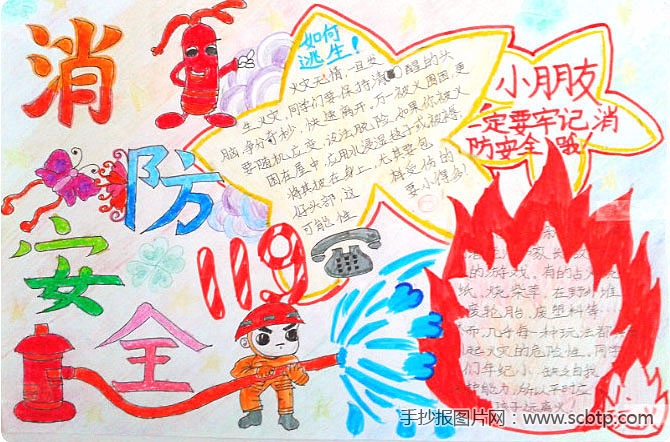 消
防
安
全
119
如何
逃生！
火灾无情,一旦发
生火灾,同学们要保持清醒的头
脑,争分夺秒,快速离开,万一被火围困,更
要随机应变,设法脱险,如果你被火
困在屋中,应用水浸湿毯子或被褥,
将其披在身上,尤其要包
好头部,这样受伤的
可能性要小得多
小朋友
一定要牢记消
防安全哦!
家长
的游戏,有的
纸、烧柴草、在野外堆
废轮胎、废塑料等
而,几乎每一种玩法都
起火灾的危险性。同学
们年纪小、缺乏自我
能力,所以平时应
手抄报图片网:www.scbtp.com